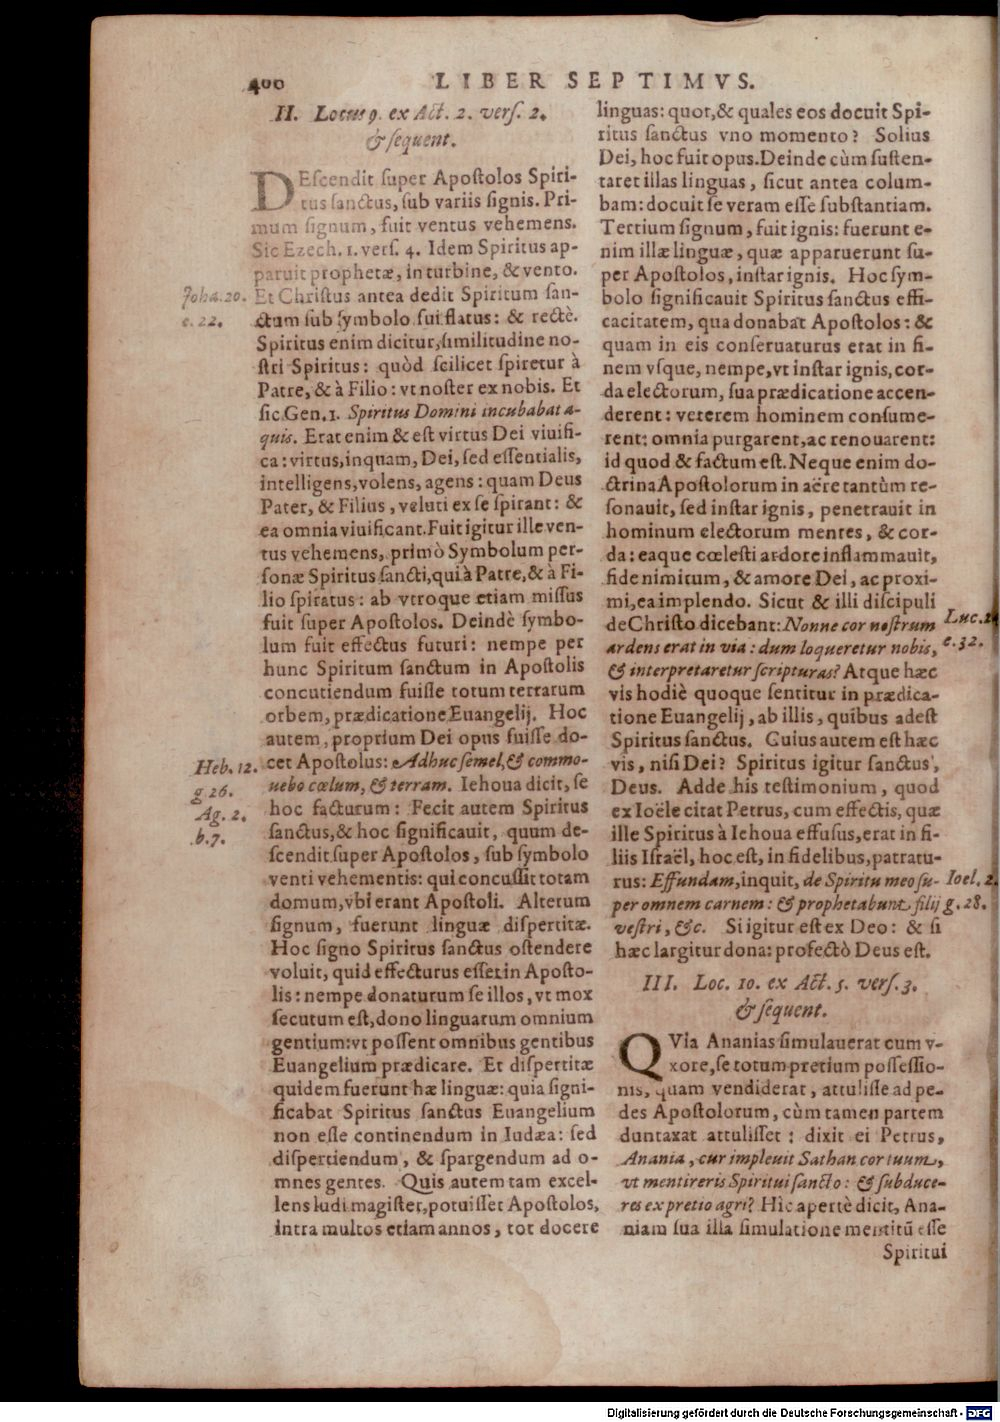 400
LIBER SEPTIMVS.
II. Locus 9. ex Act. 2. vers. 2.
& sequent.
DEscendit super Apostolos Spiri-
tus sanctus, sub variis signis. Pri-
mum signum, fuit ventus vehemens.
Sic Ezech. 1. vers. 4. Idem Spiritus ap-
paruit prophetæ, in turbine, & vento.
Et Christus antea dedit Spiritum san-
ctum sub symbolo sui flatus: & rectè.
Spiritus enim dicitur, similitudine no-
stri Spiritus: quòd scilicet spiretur à
Patre, & à Filio: vt noster ex nobis. Et
sic Gen. 1. Spiritus Domini incubabat a-
quis. Erat enim & est virtus Dei viuifi-
ca: virtus, inquam, Dei, sed essentialis,
intelligens, volens, agens: quam Deus
Pater, & Filius, veluti ex se spirant: &
ea omnia viuificant. Fuit igitur ille ven-
tus vehemens, primò Symbolum per-
sonæ Spiritus sancti, qui à Patre, & à Fi-
lio spiratus: ab vtroque etiam missus
fuit super Apostolos. Deindè symbo-
lum fuit effectus futuri: nempe per
hunc Spiritum sanctum in Apostolis
concutiendum fuisse totum terrarum
orbem, prædicatione Euangelij. Hoc
autem, proprium Dei opus fuisse do-
cet Apostolus: Adhuc semel, & commo-
uebo cœlum, & terram. Iehoua dicit, se
hoc facturum: Fecit autem Spiritus
sanctus, & hoc significauit, quum de-
scendit super Apostolos, sub symbolo
venti vehementis: qui concussit totam
domum, vbi erant Apostoli. Alterum
signum, fuerunt linguæ dispertitæ.
Hoc signo Spiritus sanctus ostendere
voluit, quid effecturus esset in Aposto-
lis: nempe donaturum se illos, vt mox
secutum est, dono linguarum omnium
gentium: vt possent omnibus gentibus
Euangelium prædicare. Et dispertitæ
quidem fuerunt hæ linguæ: quia signi-
ficabat Spiritus sanctus Euangelium
non esse continendum in Iudæa: sed
dispertiendum, & spargendum ad o-
mnes gentes. Quis autem tam excel-
lens ludi magister, potuisset Apostolos,
intra multos etiam annos, tot docere
Joha. 20.
e. 22.
Heb. 12.
g 26.
Ag. 2.
b. 7.
linguas: quot, & quales eos docuit Spi-
ritus sanctus vno momento? Solius
Dei, hoc fuit opus. Deinde cùm susten-
taret illas linguas, sicut antea colum-
bam: docuit se veram esse substantiam.
Tertium signum, fuit ignis: fuerunt e-
nim illæ linguæ, quæ apparuerunt su-
per Apostolos, instar ignis. Hoc sym-
bolo significauit Spiritus sanctus effi-
cacitatem, qua donabat Apostolos: &
quam in eis conseruaturus erat in fi-
nem vsque, nempe, vt instar ignis, cor-
da electorum, sua prædicatione accen-
derent: veterem hominem consume-
rent: omnia purgarent, ac renouarent:
id quod & factum est. Neque enim do-
ctrina Apostolorum in aëre tantùm re-
sonauit, sed instar ignis, penetrauit in
hominum electorum mentes, & cor-
da: eaque cœlesti ardore inflammauit,
fide nimitum, & amore Dei, ac proxi-
mi, ea implendo. Sicut & illi discipuli
de Christo dicebant: Nonne cor nostrum
ardens erat in via: dum loqueretur nobis,
& interpretaretur scripturas? Atque hæc
vis hodiè quoque sentitur in prædica-
tione Euangelij, ab illis, quibus adest
Spiritus sanctus. Cuius autem est hæc
vis, nisi Dei? Spiritus igitur sanctus,
Deus. Adde his testimonium, quod
ex Ioële citat Petrus, cum effectis, quæ
ille Spiritus à Iehoua effusus, erat in fi-
liis Israël, hoc est, in fidelibus, patratu-
rus: Effundam, inquit, de Spiritu meo su-
per omnem carnem: & prophetabunt filij
vestri, &c. Si igitur est ex Deo: & si
hæc largitur dona: profectò Deus est.
III. Loc. 10. ex Act. 5. vers. 3.
& sequent.
QVia Ananias simulauerat cum v-
xore, se totum pretium possessio-
nis, quam vendiderat, attulisse ad pe-
des Apostolorum, cùm tamen partem
duntaxat attulisset: dixit ei Petrus,
Anania, cur impleuit Sathan cor tuum,
vt mentireris Spiritui sancto: & subduce-
res ex pretio agri? Hîc apertè dicit, Ana-
niam sua illa simulatione mentitū esse
Spiritui
Luc. 24
e. 32.
Ioel. 2.
g. 28.
Digitalisierung gefördert durch die Deutsche Forschungsgemeinschaft - DFG